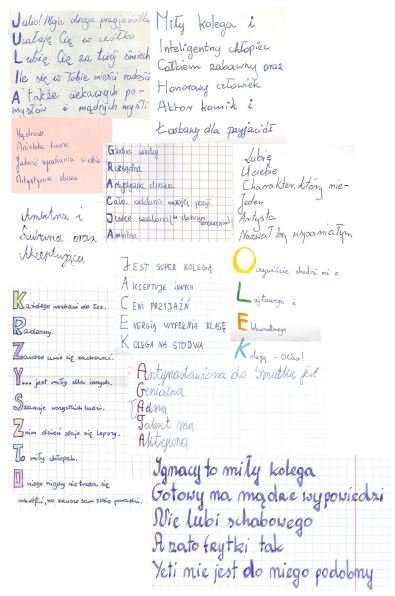 Julio! Moja droga przyjaciółko
Uczłują Cię w czółko
Lubię Cię za twój śmiech
Ile się w Tobie mieści radości
A także ciekawych po-
mysłów i mądrych myśli
Miły kolega i
Inteligentny chłopiec
Całkiem zabawny oraz
Honorowy człowiek
Aktor komik i
Łaskawy dla przyjaciół
Mądrość
Anielska twarz
Jakość wyrażania siebie
Artystyczna dusza
Głodna wiedzy
Rozsądna
Artystyczna dusza
Cała oddana swojej pasji
Jesteś szalona (w dobrym znaczeniu)
Ambitna
Lubię
Ciebie
Charakter, który nie-
Jeden
Artysta
Nazwał by wspaniałym
Ambitna i
Lubiana oraz
Akceptująca
JEST SUPER KOLEGĄ
AKCEPTUJE INNYCH
CENI PRZYJAŹŃ
ENERGIĄ WYPEŁNIA KLASĘ
KOLEGA NA STÓWĘ
Oczywiście chodzi mi o
Lojtowego i
Elokwentnego
Kolegę - Olka!
Każdego rozbawi do łez.
Radosny.
Zawsze umie się zachować.
Y... jest miły dla innych.
Szanuje wszystkich ludzi.
Z nim dzień staje się lepszy.
To miły chłopak.
O niego nigdy nie trzeba się
martwić, bo zawsze sam sobie poradzi.
Antynastawiona do smutku jest
Genialna
Ładna
Talent ma
Aktywna
Ignacy to miły kolega
Gotowy ma mądre wypowiedzi
Nie lubi schabowego
A za to frytki tak
Yeti nie jest do niego podobny